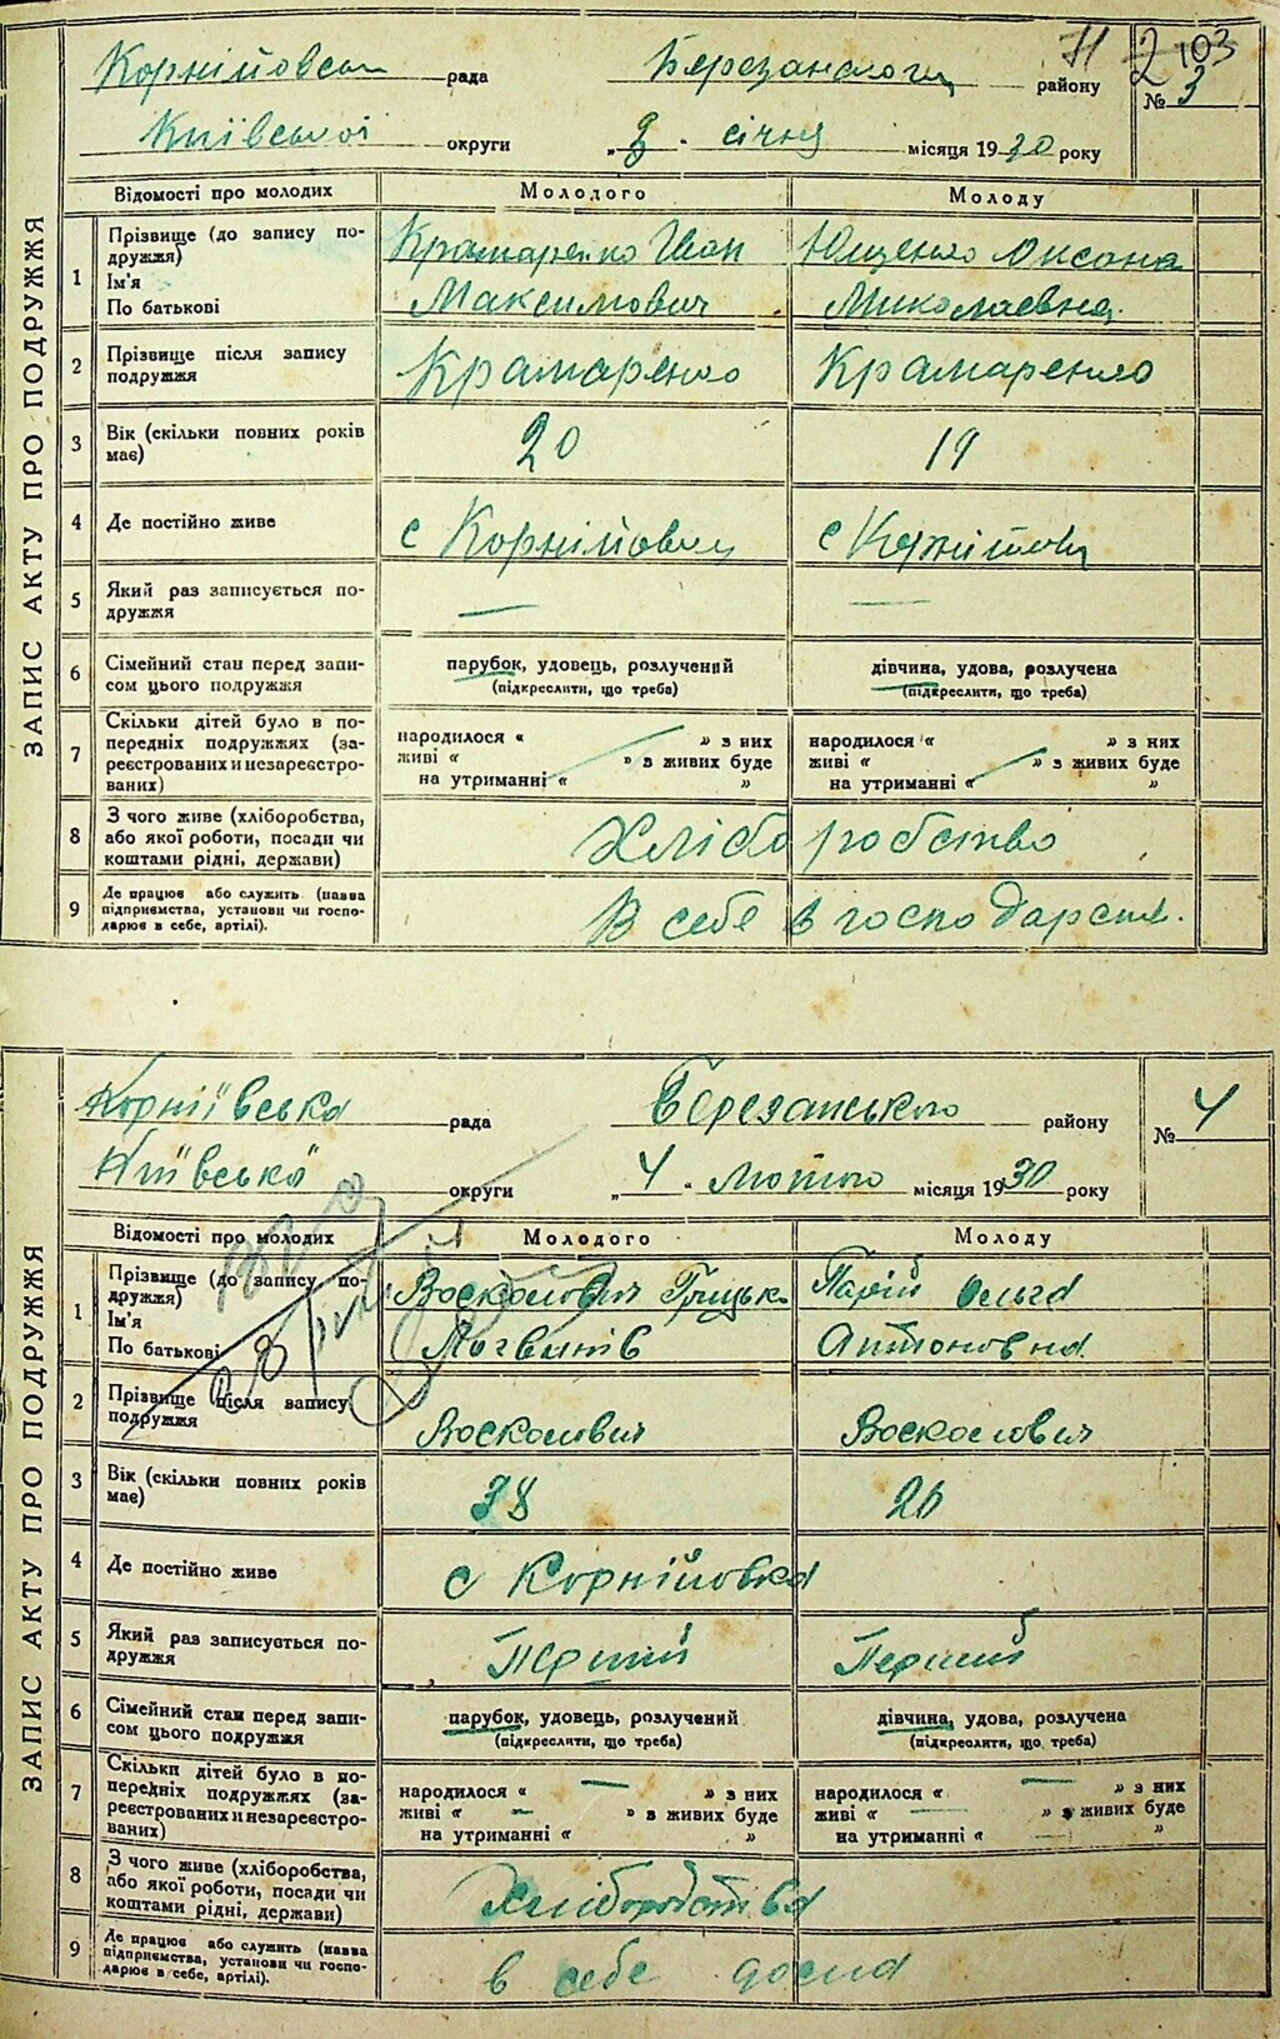 71
2 103
Корнійовськ рада Березанського району № 3
Київської округи „ 3 " січня місяця 1930 року
ЗАПИС АКТУ ПРО ПОДРУЖЖЯ
Відомості про молодих Молодого Молоду
1 Прізвище (до запису по-
дружжя)
Ім'я
По батькові
Крамаренко Іван
Максимович
Ющенко Оксана
Миколаевна
2 Прізвище після запису
подружжя
Крамаренко Крамаренко
3 Вік (скільки повних років
має)
20 19
4 Де постійно живе с Корнійовци с
5 Який раз записується по-
дружжя
— —
6 Сімейний стан перед запи-
сом цього подружжя
парубок, удовець, розлучений
(підкреслити, що треба)
дівчина, удова, розлучена
(підкреслити, що треба)
7 Скільки дітей було в по-
передніх подружжях (за-
реєстрованих и незареєстро-
ваних)
народилося « » з них
живі « » з живих буде
на утриманні « »
народилося « » з них
живі « » з живих буде
на утриманні « »
8 З чого живе (хліборобства,
або якої роботи, посади чи
коштами рідні, держави)
Хліборобство
9 Де працює або служить (назва
підприємства, установи чи госпо-
дарює в себе, артілі).
В себе в господарств.
Корніївська рада Березанського району № 4
Київська округи „ 4 " лютого місяця 1930 року
ЗАПИС АКТУ ПРО ПОДРУЖЖЯ
Відомості про молодих Молодого Молоду
1 Прізвище (до запису по-
дружжя)
Ім'я
По батькові
Восколович Грицько
Логвинів
Парій Ольга
Антоновна
2 Прізвище після запису
подружжя
Восколович Восколович
3 Вік (скільки повних років
має)
38 26
4 Де постійно живе с Корнійовка
5 Який раз записується по-
дружжя
Перший Перший
6 Сімейний стан перед запи-
сом цього подружжя
парубок, удовець, розлучений
(підкреслити, що треба)
дівчина, удова, розлучена
(підкреслити, що треба)
7 Скільки дітей було в по-
передніх подружжях (за-
реєстрованих и незареєстро-
ваних)
народилося « — » з них
живі « — » з живих буде
на утриманні « »
народилося « — » з них
живі « — » з живих буде
на утриманні « — »
8 З чого живе (хліборобства,
або якої роботи, посади чи
коштами рідні, держави)
Хліборобства
9 Де працює або служить (назва
підприємства, установи чи госпо-
дарює в себе, артілі).
в себе дома